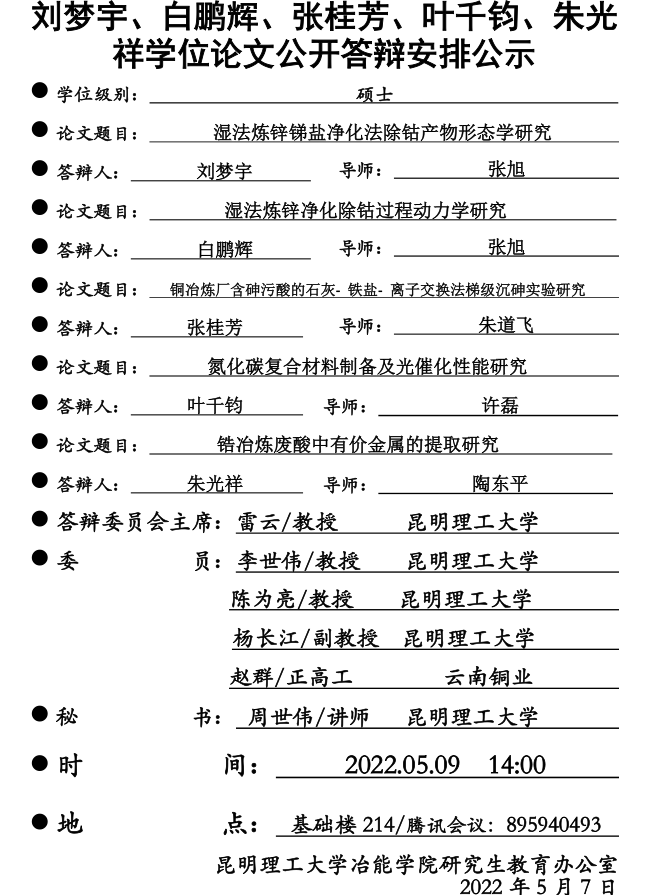 刘梦宇、白鹏辉、张桂芳、叶千钧、朱光
祥学位论文公开答辩安排公示
● 学位级别： 硕士
● 论文题目： 湿法炼锌锑盐净化法除钴产物形态学研究
● 答辩人： 刘梦宇 导师： 张旭
● 论文题目： 湿法炼锌净化除钴过程动力学研究
● 答辩人： 白鹏辉 导师： 张旭
● 论文题目： 铜冶炼厂含砷污酸的石灰- 铁盐- 离子交换法梯级沉砷实验研究
● 答辩人： 张桂芳 导师： 朱道飞
● 论文题目： 氮化碳复合材料制备及光催化性能研究
● 答辩人： 叶千钧 导师： 许磊
● 论文题目： 锆冶炼废酸中有价金属的提取研究
● 答辩人： 朱光祥 导师： 陶东平
● 答辩委员会主席：雷云/教授 昆明理工大学
● 委 员：李世伟/教授 昆明理工大学
陈为亮/教授 昆明理工大学
杨长江/副教授 昆明理工大学
赵群/正高工 云南铜业
● 秘 书： 周世伟/讲师 昆明理工大学
● 时 间： 2022.05.09 14:00
● 地 点： 基础楼 214/腾讯会议：895940493
昆明理工大学冶能学院研究生教育办公室
2022 年 5 月 7 日